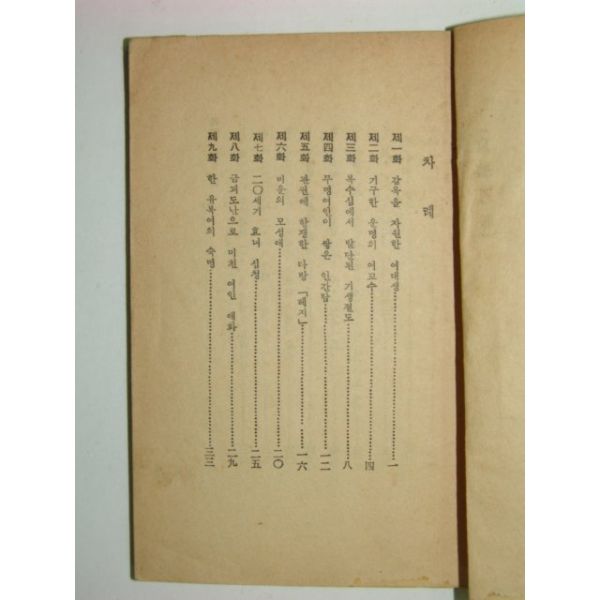 차 례
제一화 감옥을 자원한 여대생……一
제二화 기구한 운명의 여교수……四
제三화 복수심에서 발단된 기생절도……八
제四화 무명여인이 쌓은 인간탑……一二
제五화 관권에 항쟁한 다방 「레지」……一六
제六화 비운의 모성애……二〇
제七화 二〇세기 효녀 심청……二五
제八화 금괴도난으로 미친 여인 애화……二九
제九화 한 유복녀의 숙명……三三